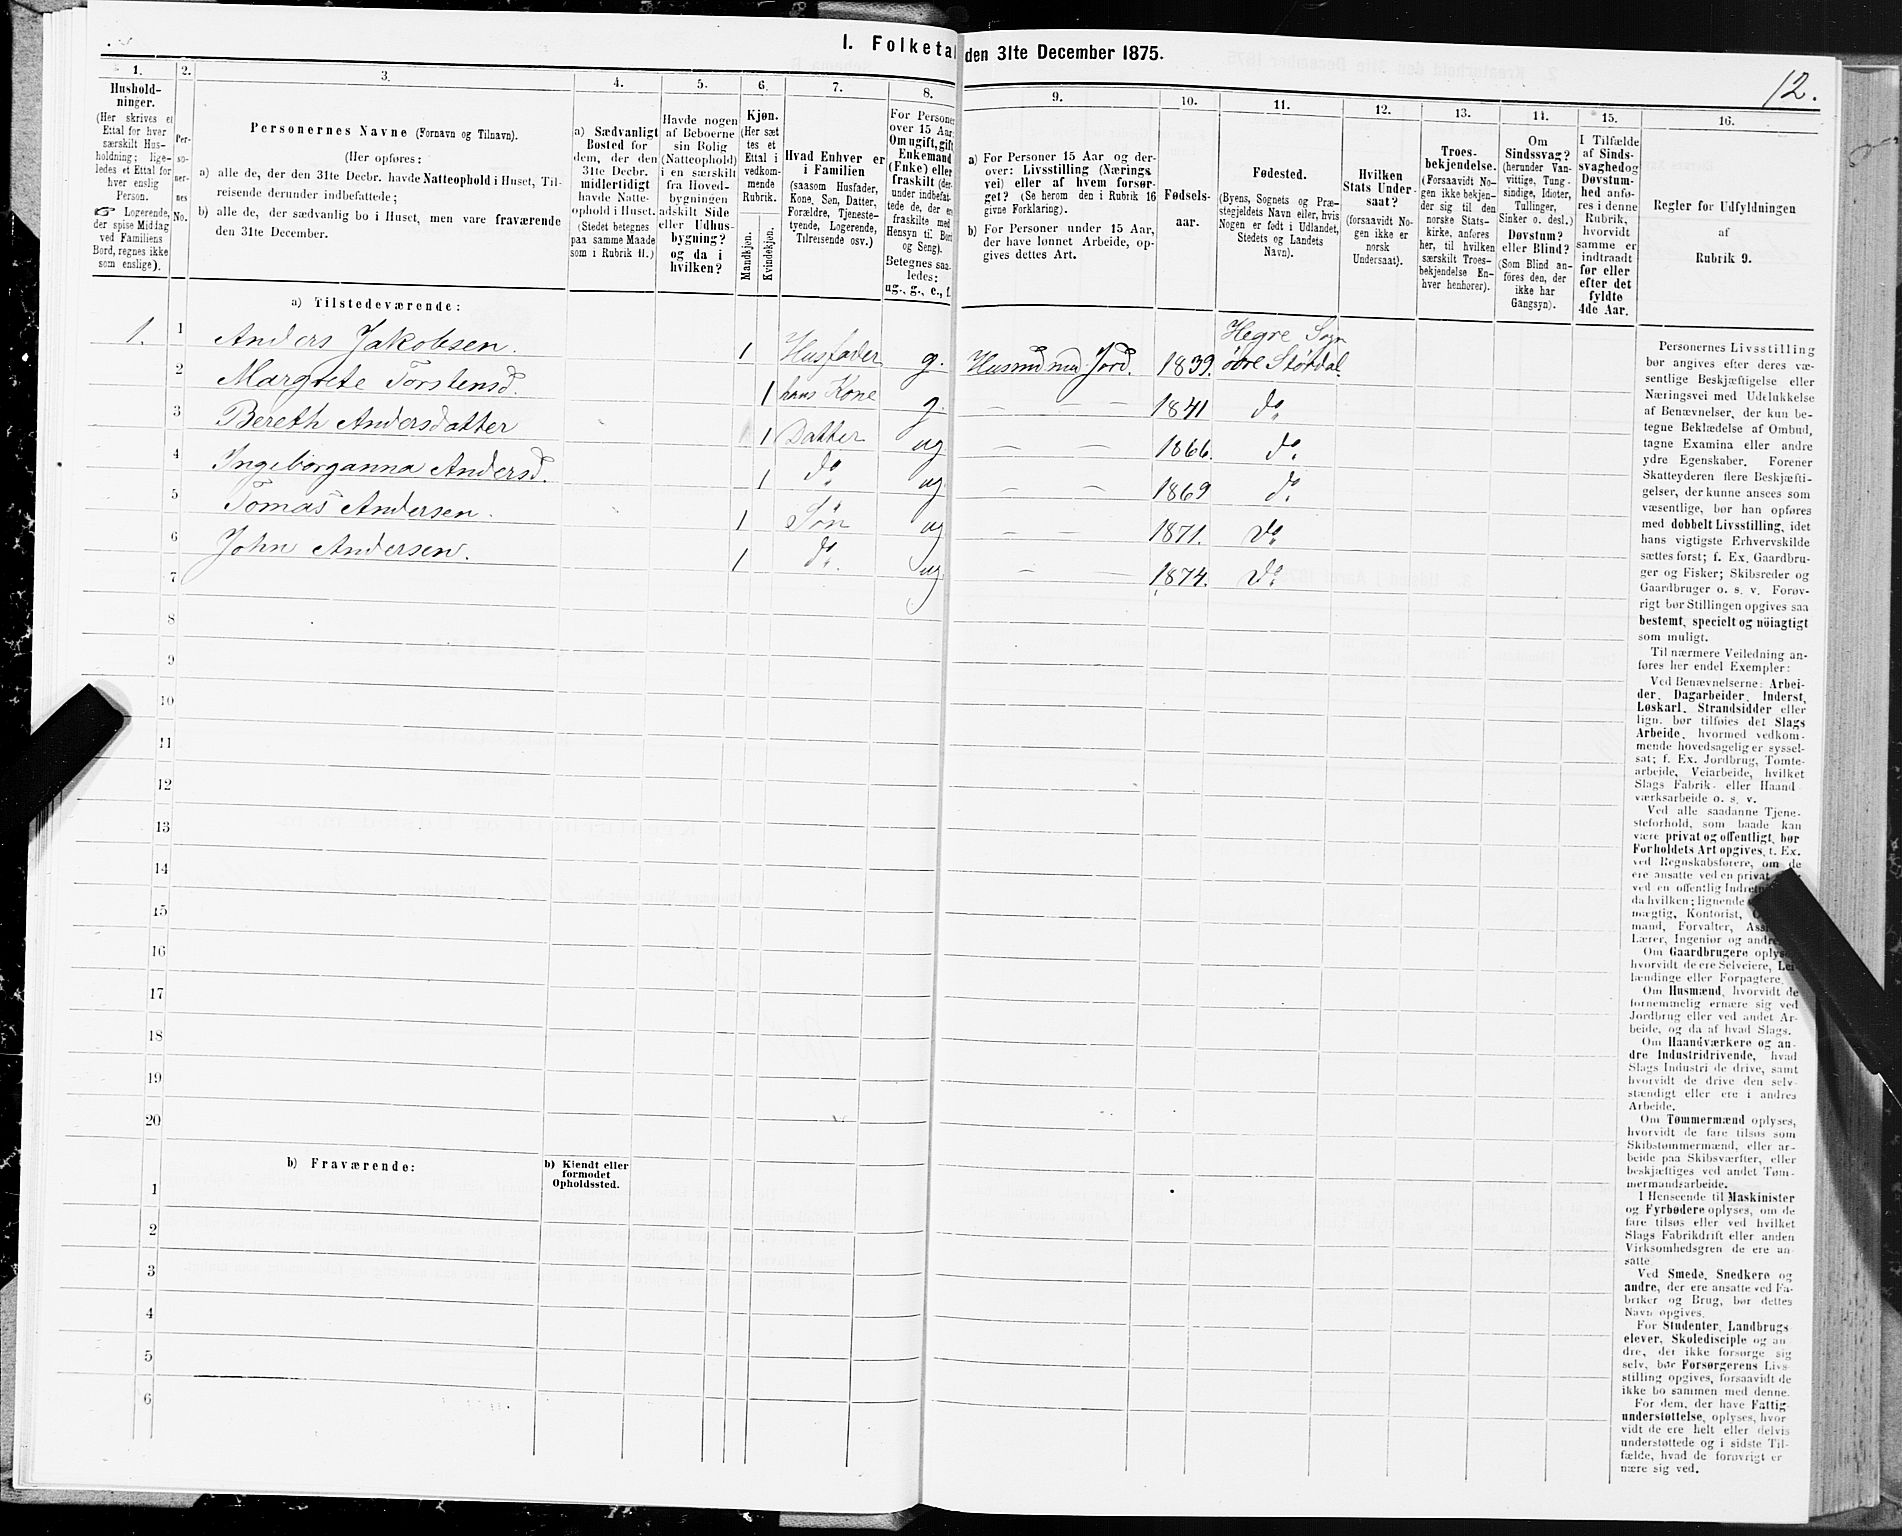 I. Folketal den 31te December 1875.
12.
1.
Hushold-
ninger.
(Her skrives et
Ettal for hver
særskilt Hus-
holdning; lige-
ledes et Ettal for
hver enslig
Person.
☞ Logerende,
der spise Middag
ved Familiens
Bord, regnes ikke
som enslige).
2.
Per-
so-
ner-
nes
No.
3.
Personernes Navne (Fornavn og Tilnavn).
(Her opføres:
a) alle de, der den 31te Decbr. havde Natteophold i Huset, Til-
reisende derunder indbefattede;
b) alle de, der sædvanlig bo i Huset, men vare fraværende
den 31te December.
4.
a) Sædvanligt
Bosted for
dem, der den
31te Decbr.
midlertidigt
havde Natte-
ophold i Huset.
(Stedet betegnes
paa samme Maade
som i Rubrik 11.)
5.
Havde nogen
af Beboerne
sin Bolig
(Natteophold)
i en særskilt
fra Hoved-
bygningen
adskilt Side
eller Udhus-
bygning?
og da i
hvilken?
6.
Kjøn.
(Her sæt
tes et
Ettal i
vedkom-
mende
Rubrik.
Mandkjøn.
Kvindekjøn.
7.
Hvad Enhver er
i Familien
(saasom Husfader,
Kone, Søn, Datter,
Forældre, Tjeneste-
tyende, Logerende,
Tilreisende osv.)
8.
For Personer
over 15 Aar:
Om ugift, gift,
Enkemand
(Enke) eller
fraskilt (der-
under indbefat-
tede de, der er
fraskilte med
Hensyn til Bord
og Seng).
Betegnes saa-
ledes:
ug., g., e., f.
9.
a) For Personer 15 Aar og der-
over: Livsstilling (Nærings
vei) eller af hvem forsør-
get? (Se herom den i Rubrik 16
givne Forklaring).
b) For Personer under 15 Aar,
der have lønnet Arbeide, op-
gives dettes Art.
10.
Fødsels-
aar.
11.
Fødested.
(Byens, Sognets og Præ-
stegjeldets Navn eller, hvis
Nogen er født i Udlandet,
Stedets og Landets
Navn).
12.
Hvilken
Stats Under-
saat?
(forsaavidt No-
gen ikke er
norsk
Undersaat).
13.
Troes-
bekjendelse.
(Forsaavidt No-
gen ikke bekjen-
der sig til den
norske Stats-
kirke, anføres
her, til hvilken
særskilt Troes-
bekjendelse En-
hver henhører).
14.
Om
Sindssvag?
(herunder Van-
vittige, Tung-
sindige, Idioter,
Tullinger,
Sinker o. desl.)
Døvstum?
eller Blind?
(Som Blind an-
føres den, der
ikke har
Gangsyn).
15.
I Tilfælde
af Sinds-
svaghed og
Døvstum-
hed anfø-
res i denne
Rubrik,
hvorvidt
samme er
indtraadt
før eller
efter det
fyldte
4de Aar.
16.
Regler for Udfyldningen
af
Rubrik 9.
a) Tilstedeværende:
1. 1 Anders Jakobsen. 1 Husfader g. Husmd med Jord. 1839. Hegre Sogn
øvre Stördal.
2 Margrete Torstensd. 1 hans Kone g. — — 1841 do.
3 Bereth Andersdatter 1 Datter ug — — 1866. do.
4 Ingeborganna Andersd. 1 do. ug — — 1869 do.
5 Tomas Andersen. 1 Søn ug — — 1871. Do.
6 John Andersen. 1 do. ug — — 1874. Do.
7
8
9
10
11
12
13
14
15
16
17
18
19
20
b) Fraværende:
b) Kjendt eller
formodet
Opholdssted.
1
2
3
4
5
6
Personernes Livsstilling
bør angives efter deres væ-
sentlige Beskjæftigelse eller
Næringsvei med Udelukkelse
af Benævnelser, der kun be-
tegne Beklædelse af Ombud,
tagne Examina eller andre
ydre Egenskaber. Forener
Skatteyderen flere Beskjæfti-
gelser, der kunne ansees som
væsentlige, bør han opføres
med dobbelt Livsstilling, idet
hans vigtigste Erhvervskilde
sættes først; f. Ex. Gaardbru-
ger og Fisker; Skibsreder og
Gaardbruger o. s. v. Forøv-
rigt bør Stillingen opgives saa
bestemt, specielt og nöiagtigt
som muligt.
Til nærmere Veiledning an-
føres her endel Exempler:
Ved Benævnelserne: Arbei-
der, Dagarbeider, Inderst,
Løskarl, Strandsidder eller
lign. bør tilføies det Slags
Arbeide, hvormed vedkom-
mende hovedsagelig er syssel-
sat; f. Ex. Jordbrug, Tomte-
arbeide, Veiarbeide, hvilket
Slags Fabrik- eller Haand
værksarbeide o. s. v.
Ved alle saadanne Tjene-
steforhold, som baade kan
være privat og offentligt, bør
Forholdets Art opgives, f. Ex.
ved Regnskabsførere, om de
ere ansatte ved en privat
ved en offentlig
da hvilken; lignende
mægtig, Kontorist,
mand, Forvalter,
Lærer, Ingeniør og andre
Om Gaardbrugere oplyses
hvorvidt de ere Selveiere, Lei-
lændinge eller Forpagtere.
Om Husmænd, hvorvidt de
fornemmelig ernære sig ved
Jordbrug eller ved andet Ar-
beide, og da af hvad Slags.
Om Haandværkere og an-
dre Industridrivende, hvad
Slags Industri de drive, samt
hvorvidt de drive den selv-
stændigt eller ere i andres
Arbeide.
Om Tømmermænd oplyses,
hvorvidt de fare tilsøs som
Skibstømmermænd, eller ar-
beide paa Skibsværfter, eller
beskjæftiges ved andet Tøm-
mermandsarbeide.
I Henseende til Maskinister
og Fyrbødere oplyses, om de
fare tilsøs eller ved hvilket
Slags Fabrikdrift eller anden
Virksomhedsgren de ere an-
satte.
Ved Smede, Snedkere og
andre, der ere ansatte ved Fa-
briker og Brug, bør dettes
Navn opgives.
For Studenter, Landbrugs
elever, Skoledisciple og an
dre, der ikke forsørge sig
selv, bør Forsørgerens Livs-
stilling opgives, forsaavidt de
ikke bo sammen med denne.
For dem, der have Fattig
understøttelse, oplyses, hvor
vidt de ere helt eller delvis
understøttede og i sidste Til-
fælde, hvad de forøvrigt er
nære sig ved.